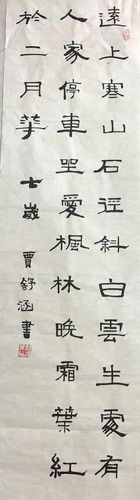 遠上寒山石徑斜白雲生處有
人家停車坐愛楓林晚霜葉紅
於二月華 十一歲 賈舒涵書